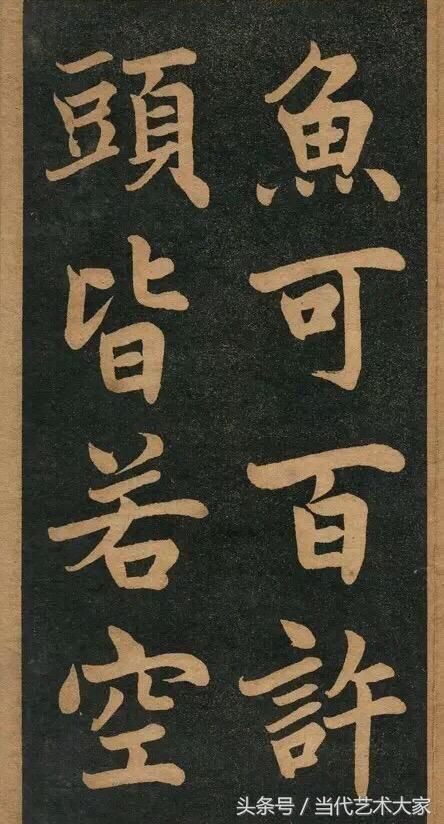 魚可百許
頭皆若空
头条号／当代艺术大家